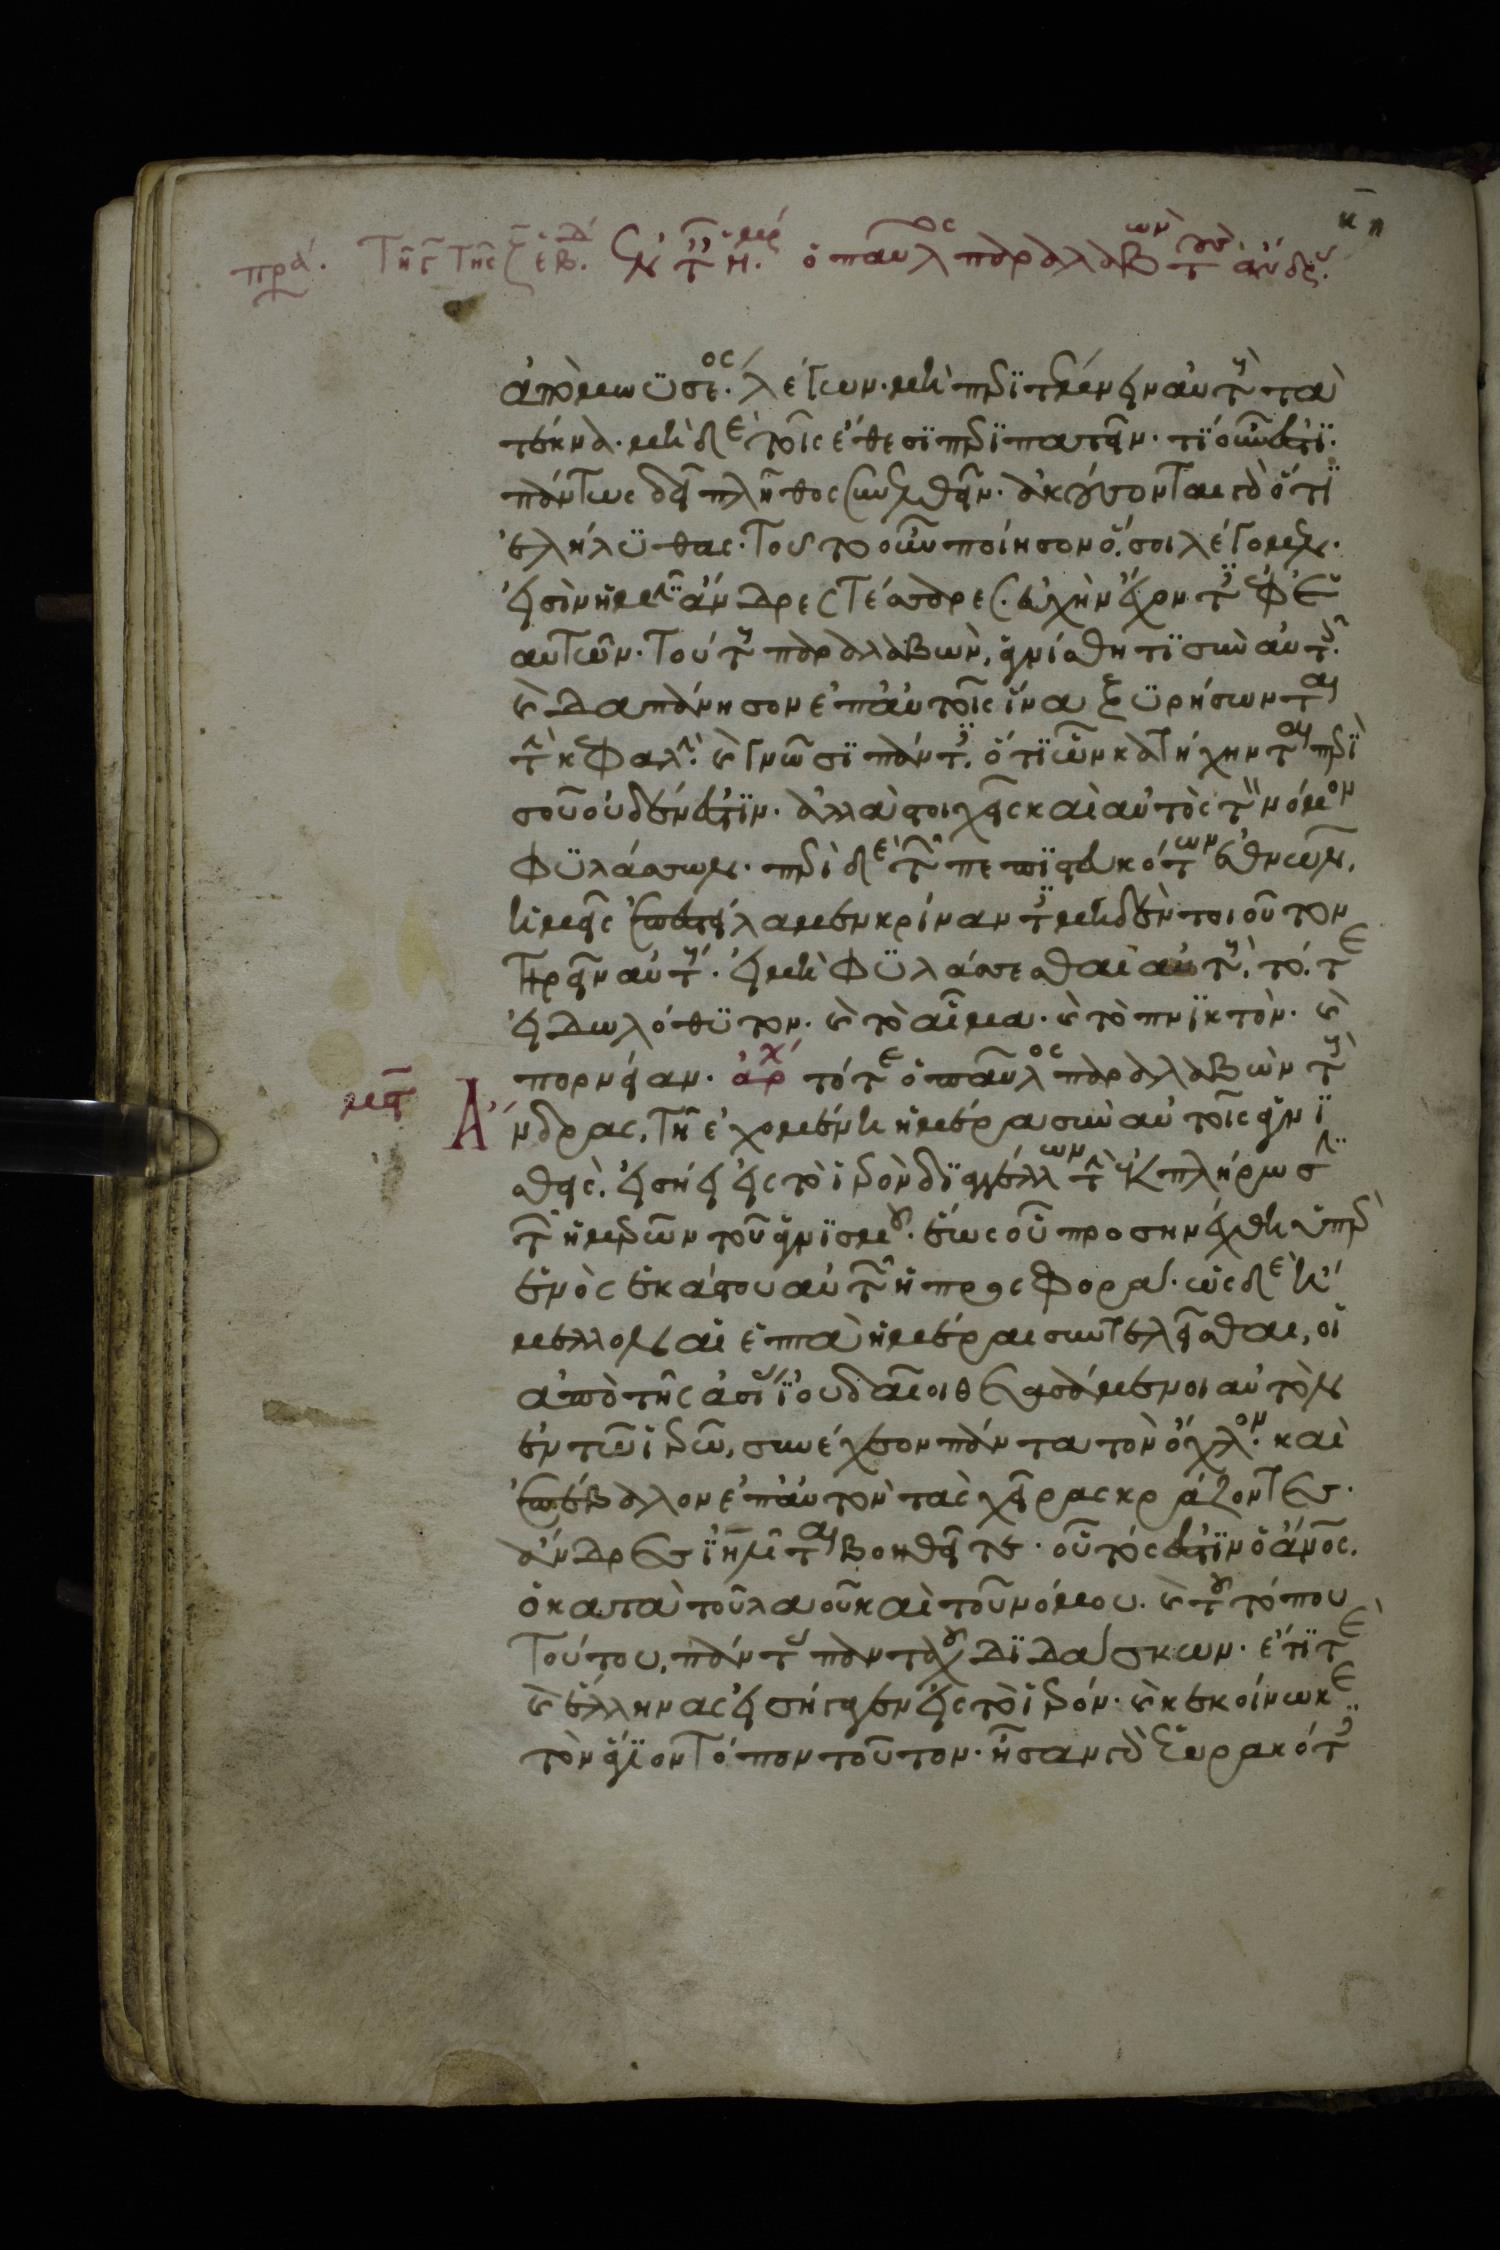 κη
πρά. Τῆ ϛ τῆς ξ ἑβδ. ἐν τ ἡμέρ ὁ παῦλος παραλαβὼν τοὺς ἄνδρ.
ἀπὸ μωϋσέος. λέγων. μὴ περϊτέμνειν αὐτοὺς τὰ
τέκνα. μὴ δὲ τοῖς ἔθεσϊ περϊπατεῖν. τϊ οὖν ἐστϊ.
πάντως δεῖ πλῆθος συνελθεῖν. ἀκούσονται γὰρ ὅτι
ἐλήλϋθας. τοῦτο οὖν ποίησον ὅ σοι λέγομεν.
εἰσὶν ἡμῖν ἄνδρες τέσσαρες. εὐχὴν ἔχοντες ἐφ ἑ
αυτῶν. τούτους παραλαβὼν, ἁγνίσθητϊ σὺν αὐτοῖς.
καὶ δαπάνησον ἐπ αὐτοῖς ἵνα ξϋρήσωνται
τὴν κεφαλήν. καὶ γνῶσϊ πάντες. ὅτϊ ὧν κατήχηνται περὶ
σοῦ οὐδέν ἐστϊν. ἀλλὰ στοιχεῖς καὶ αὐτὸς τὸν νόμον
φϋλάσσων. περὶ δὲ τῶν πεπϊστευκότων ἐθνῶν,
ἡμεῖς ἐπεστείλαμεν κρίναντες μηδὲν τοιοῦτον
τηρεῖν αὐτούς. εἰ μὴ φϋλάσσεσθαι αὐτούς. τό. τε
εἰδωλόθϋτον. καὶ τὸ αἷμα. καὶ τὸ πνϊκτὸν. καὶ
πορνείαν. ἀρχ τότε ὁ παῦλος παραλαβὼν τοὺς
Ἄνδρας, τῇ ἐχομένη ἡμέρα σὺν αὐτοῖς ἁγνϊ
σθεὶς. εἰσήει εἰς τὸ ἱερὸν δϊαγγέλλων τὴν ἐκπλήρωσϊν
τῶν ἡμερῶν τοῦ ἁγνϊσμοῦ. ἕως οὗ προσηνέχθη ὑπὲρ
ἑνὸς ἑκάστου αὐτῶν ἡ προσφορά. ὡς δὲ ἤ
μελλον αἱ ἑπτὰ ἡμέραι συντελεῖσθαι, οἱ
ἀπὸ τῆς ἀσίας ἰουδαῖοι θεασάμενοι αὐτὸν
ἐν τῶ ἱερῶ, συνέχεον πάντα τὸν ὄχλον. καὶ
ἐπέβαλλον ἐπ αὐτὸν τὰς χεῖρας κράζοντες.
ἄνδρες ϊηλῖται βοηθεῖτε. οὗτός ἐστϊν ὁ ἄνος.
ὁ κατὰ τοῦ λαοῦ καὶ τοῦ νόμου. καὶ τοῦ τόπου
τούτου, πάντας πανταχοῦ δϊδάσκων. ἔτϊ τε
καὶ ἕλληνας εἰσήγαγεν εἰς τὸ ἱερόν. καὶ κεκοίνωκε
τὸν ἅγϊον τόπον τοῦτον. ἦσαν γὰρ ἑωρακότες